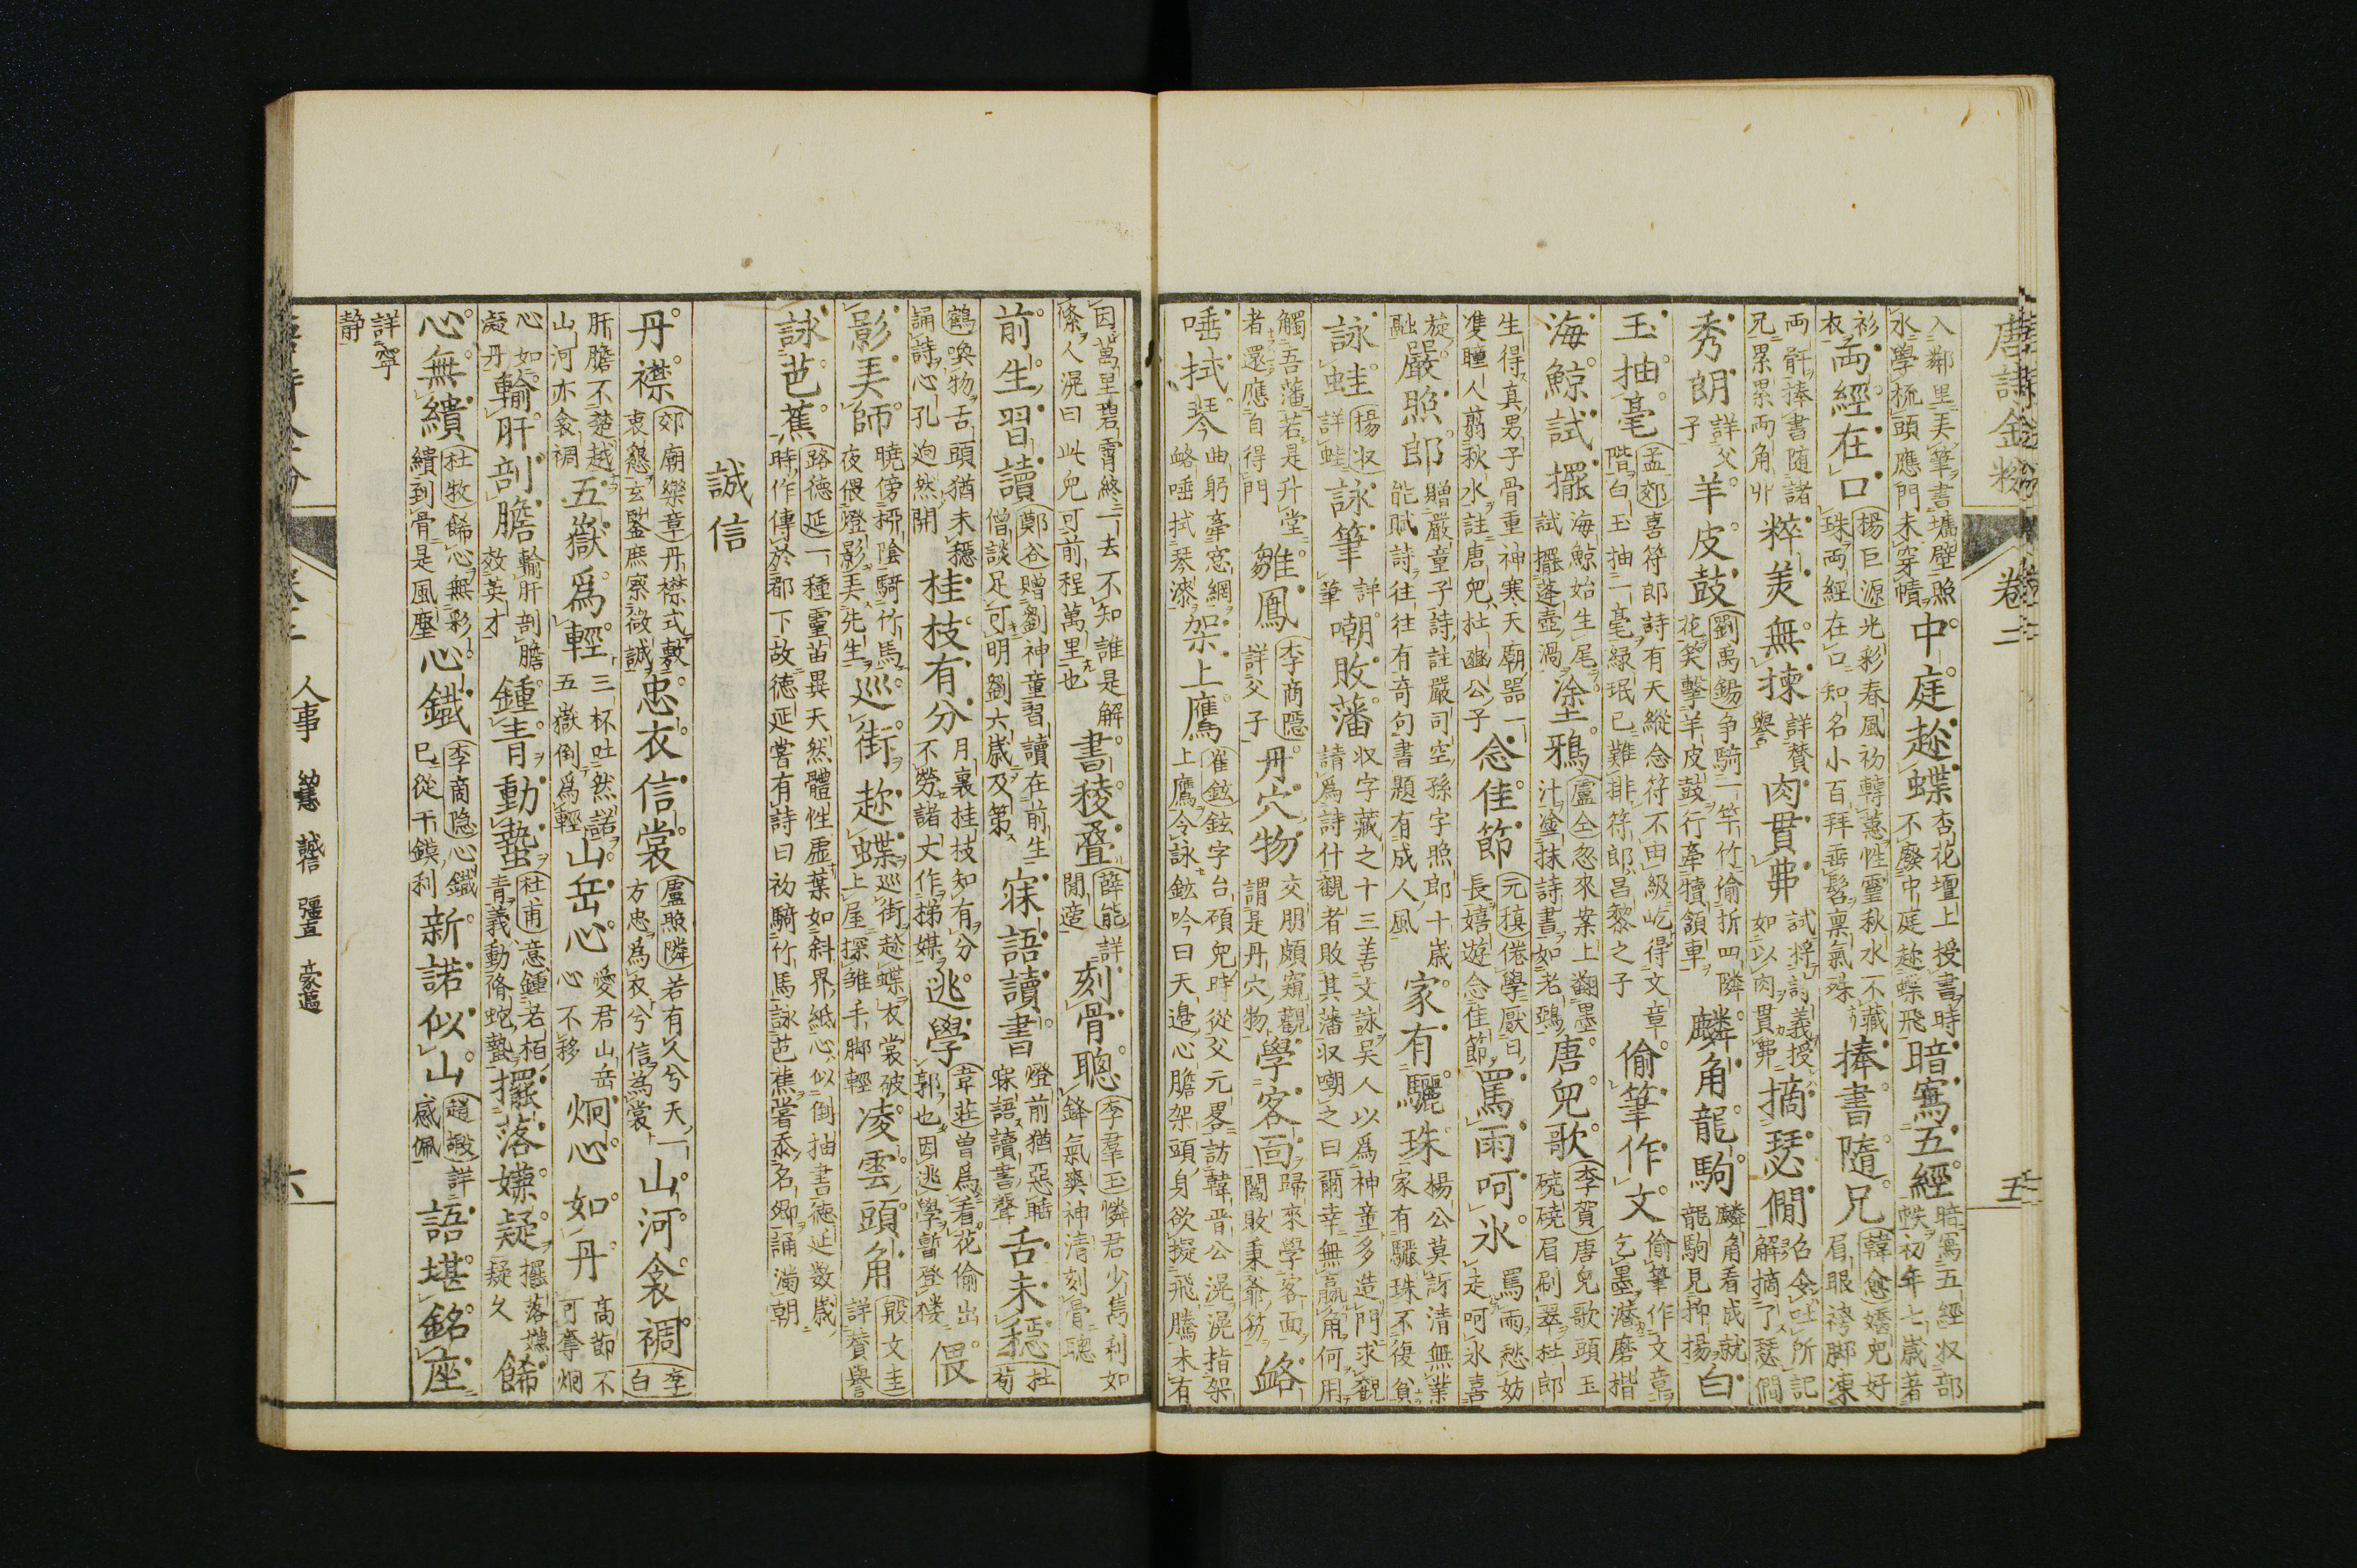 唐詩金粉 卷二 五
入鄰里美筆書墻壁照水學梳頭應門未穿幘 中庭趁蝶 杏花壇上授書時不廢中庭趁蝶飛 暗寫五經 暗寫五經収部帙初年七歲著
衫衣 両經在口 楊巨源 光彩春風初轉蕙性靈秋水不藏珠両經在口知名小百拜垂髫稟氣殊 捧書隨兄 韓愈 嬌兒好眉眼袴脚凍
両骭捧書隨諸兄累累両角丱 粹美無揀 詳賛譽 肉貫弗 試將詩義授如以肉貫弗 摘瑟僩 召令吐所記解摘了瑟僩
秀朗 詳父子 羊皮鼓 劉禹錫 争騎一竿竹偷折四隣花笑擊羊皮鼓行牽犢領車 麟角龍駒 麟角看成就龍駒見抑揚 白
玉抽毫 孟郊 喜符郎詩有天縱念符不由級屹得文章階白玉抽一毫綠珉已難排符郎昌黎之子 偷筆作文 偷筆作文章乞墨潛磨揩
海鯨試擺 海鯨始生尾試擺蓬壺渦 塗鴉 盧仝 忽來案上翻墨汁塗抹詩書如老鴉 唐兒歌 李賀 唐兒歌頭玉磽磽眉刷翠杜郎
生得真男子骨重神寒天廟器一雙瞳人剪秋水註唐兒杜豳公子 念佳節 元稹 倦學厭日長嬉遊念佳節 罵雨呵氷 罵雨愁妨走呵氷喜
旋融 嚴照郎 贈嚴童子詩註嚴司空孫字照郎十歲能賦詩往往有奇句書題有成人風 家有驪珠 楊公莫訝清無業家有驪珠不復貧
詠蛙 楊収 詳蛙 詠筆 詳筆 嘲敗藩 収字藏之十三善文詠吴人以爲神童多造門求觀請爲詩什觀者敗其藩収嘲之曰爾幸無羸角何用
觸吾藩若是升堂者還應自得門 雛鳳 李商隱 詳父子 丹穴物 交朋頗窺觀謂是丹穴物 學客回 歸來學客面闈敗秉爺笏 略
唾拭琴 曲躬牽窓網略唾拭琴漆 架上鷹 崔鉉 鉉字台碩兒時從父元畧訪韓晋公滉滉指架上鷹令詠鉉吟曰天邉心膽架頭身欲擬飛騰未有
因萬里碧霄終一去不知誰是解絛人滉曰此兒可前程萬里也 書稜疊 薛能 詳閒適 刻骨聰 李羣玉 憐君少雋利如鋒氣爽神清刻骨聰
前生習讀 鄭谷 贈劉神童習讀在前生僧談足可明劉六歲及第 寐語讀書 燈前猶惡睡寐語讀書聲 舌未穏 杜荀
鶴 喚物舌頭猶未穏誦詩心孔迥然開 桂枝有分 月裏桂枝知有分不勞諸丈作梯媒 逃學 韋莊 曾爲看花偷出郭也因逃學暫登楼 偎
影美師 曉傍掃陰騎竹馬夜偎燈影美先生 巡街趁蝶 巡街趁蝶衣裳破上屋探雛手脚輕 凌雲頭角 殷文圭 詳賛譽
詠芭蕉 路德延 一種靈苗異天然體性虚葉如斜界紙心似倒抽書徳延数歲時作傳於都下故徳延嘗有詩曰初騎竹馬詠芭蕉嘗忝名卿誦滿朝
誠信
丹襟 郊廟樂章 丹襟式敷衷懇玄鑒庶察微誠 忠衣信裳 盧照隣 若有人兮天一方忠爲衣兮信為裳 山河衾裯 李白
肝膽不楚越山河亦衾裯 五嶽爲輕 三杯吐然諾五嶽倒爲輕 山岳心 愛君山岳心不移 炯心如丹 高節不可奪炯
心如凝丹 輸肝剖膽 輸肝剖膽效英才 鍾青動蟄 杜甫 意鍾若栢青義動脩蛇蟄 擺落嫌疑 擺落嫌疑久 餙
心無繢 杜牧 餙心無彩繢到骨是風塵 心鐡 李商隐 心鐡已從干鏌利 新諾似山 趙嘏 詳感佩 語堪銘座
詳寧静
卷二 人事 幼慧 誠信 彊直 豪邁 六